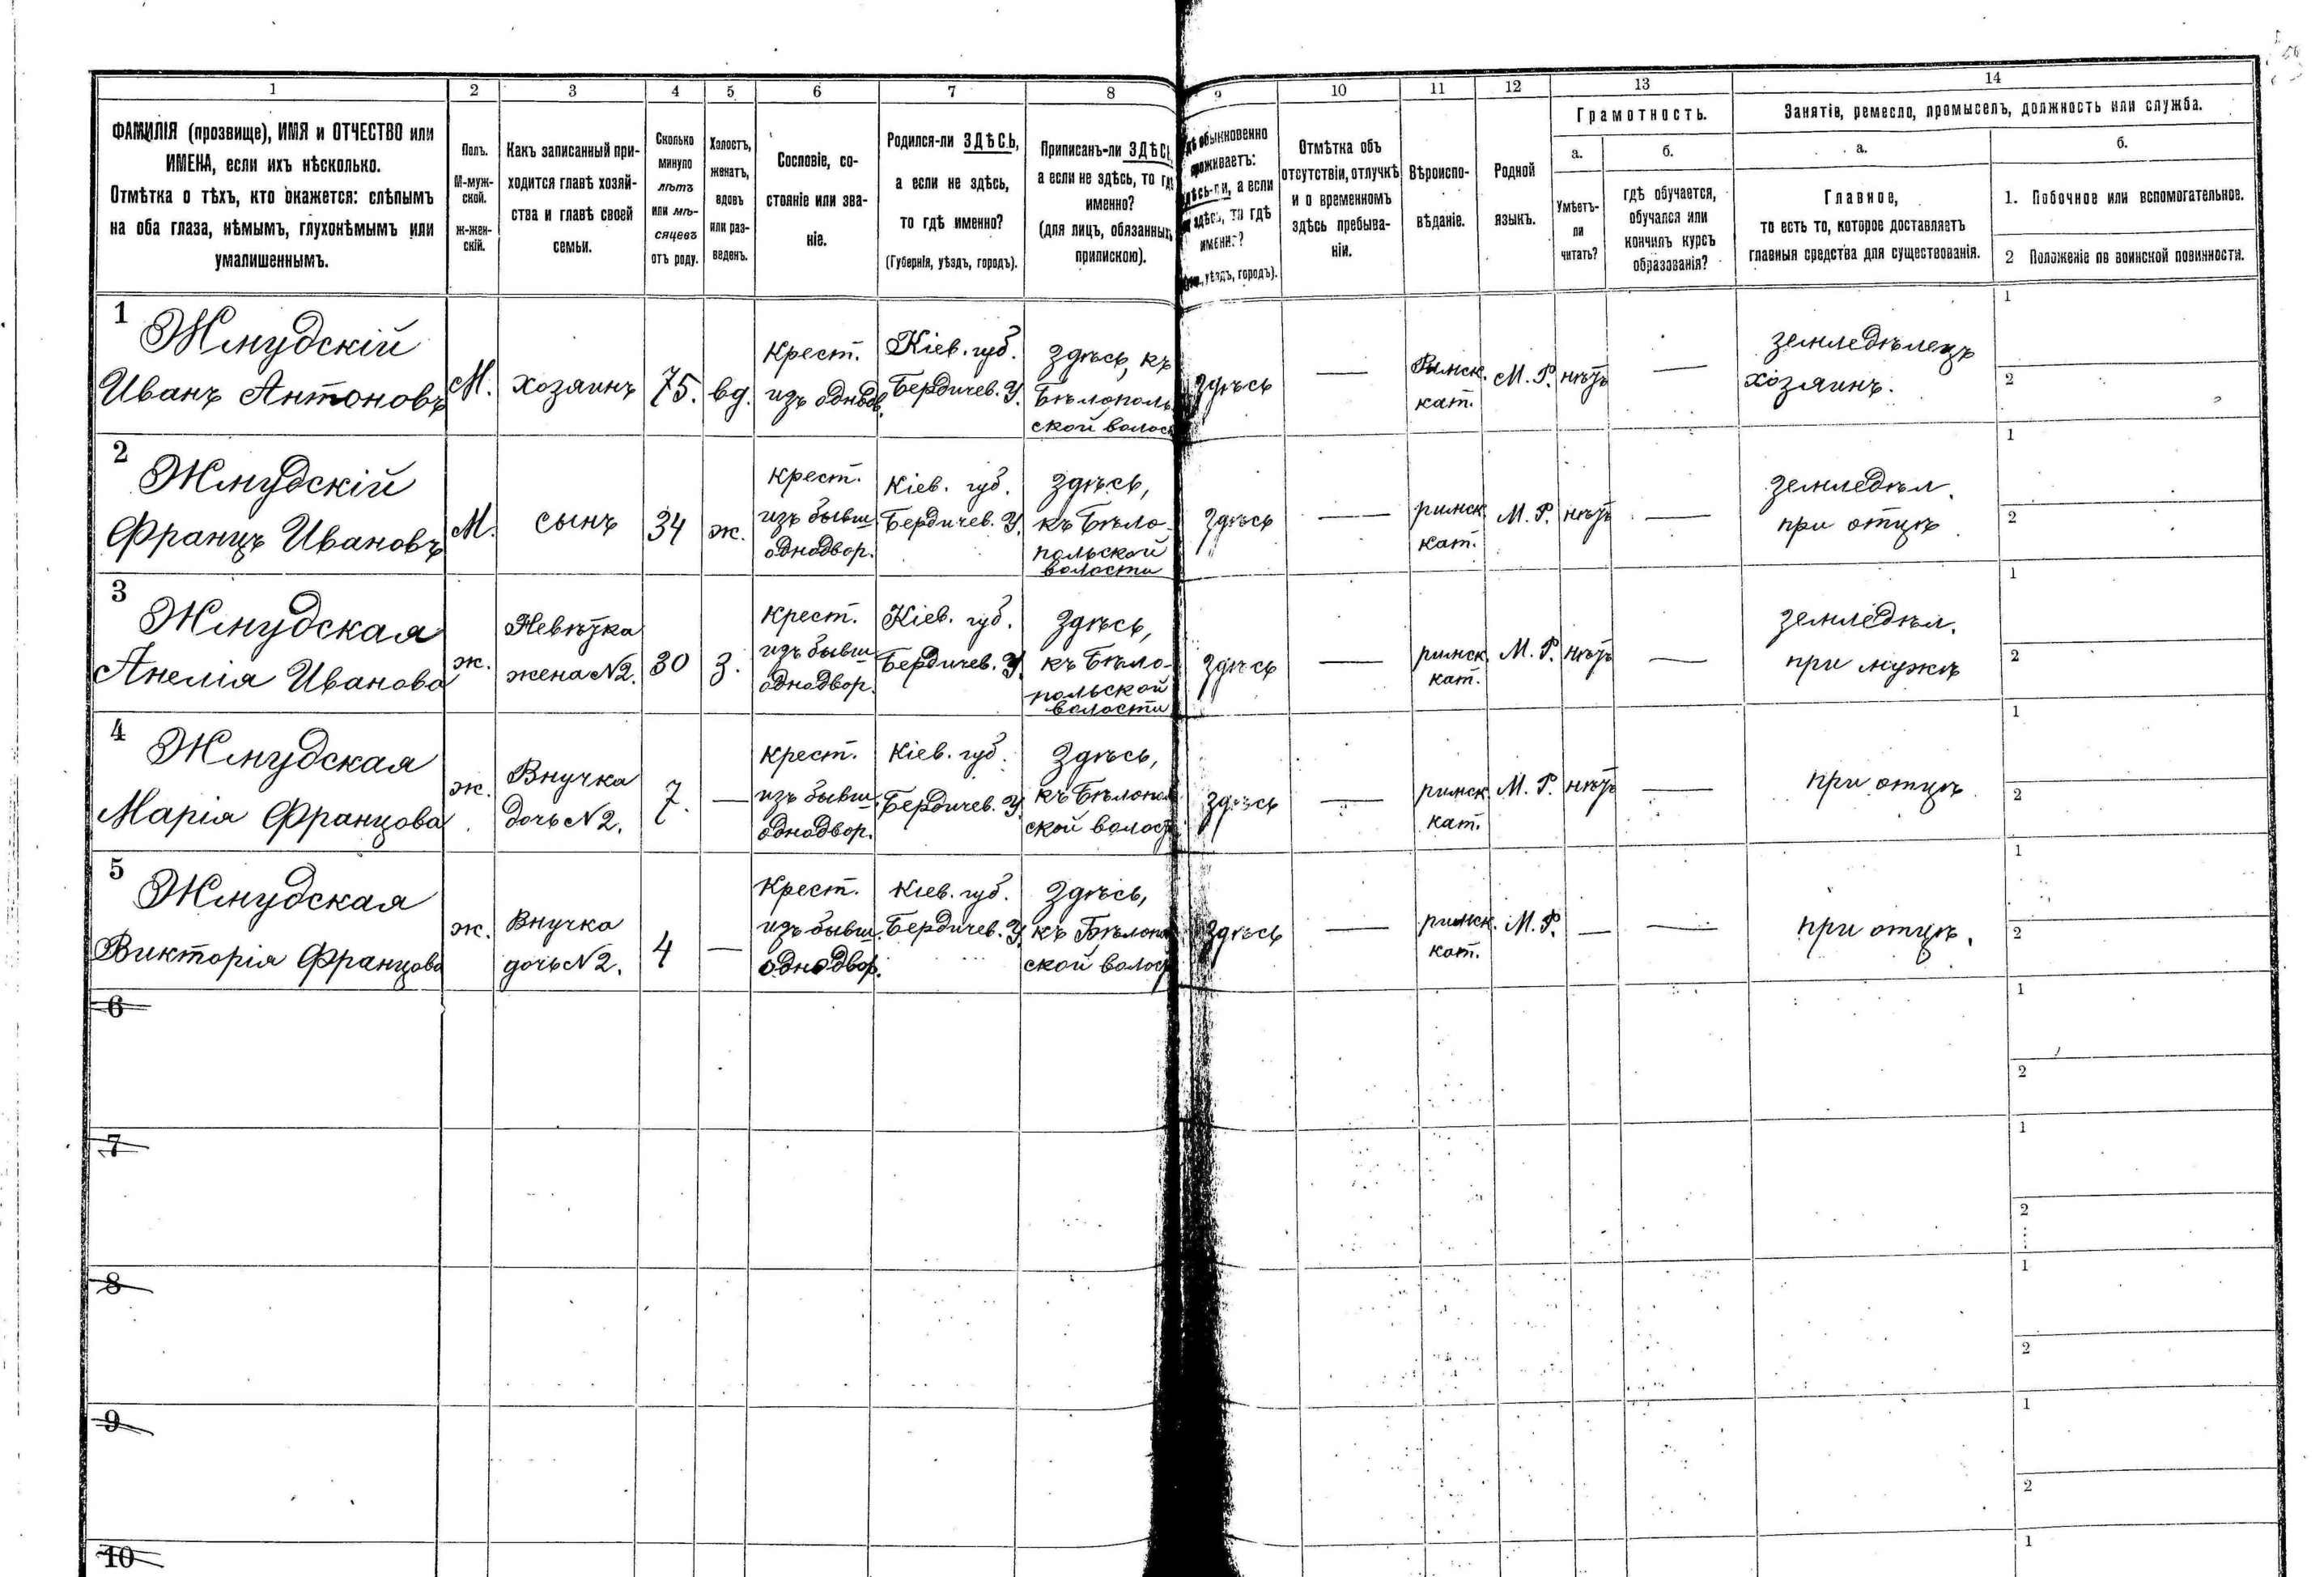 1 2 3 4 5 6 7 8 9 10 11 12 13 14
ФАМИЛІЯ (прозвище), ИМЯ и ОТЧЕСТВО или
ИМЕНА, если ихъ нѣсколько.
Отмѣтка о тѣхъ, кто окажется: слѣпымъ
на оба глаза, нѣмымъ, глухонѣмымъ или
умалишеннымъ.
Полъ.
М-муж-
ской.
ж-жен-
скій.
Какъ записанный при-
ходится главѣ хозяй-
ства и главѣ своей
семьи.
Сколько
минуло
лѣтъ
или мѣ-
сяцевъ
отъ роду.
Холостъ,
женатъ,
вдовъ
или раз-
веденъ.
Сословіе, со-
стояніе или зва-
ніе.
Родился-ли ЗДѢСЬ,
а если не здѣсь,
то гдѣ именно?
(Губернія, уѣздъ, городъ).
Приписанъ-ли ЗДѢСЬ,
а если не здѣсь, то гдѣ
именно?
(для лицъ, обязанныхъ
припискою).
обыкновенно
проживаетъ:
здѣсь-ли, а если
не здѣсь, то гдѣ
именно?
уѣздъ, городъ).
Отмѣтка объ
отсутствіи, отлучкѣ
и о временномъ
здѣсь пребыва-
ніи.
Вѣроиспо-
вѣданіе.
Родной
языкъ.
Грамотность.
а.
Умѣетъ-
ли
читать?
б.
гдѣ обучается,
обучался или
кончилъ курсъ
образованія?
Занятіе, ремесло, промыселъ, должность или служба.
а.
Главное,
то есть то, которое доставляетъ
главныя средства для существованія.
б.
1. Побочное или вспомогательное.
2 Положеніе по воинской повинности.
1
Жмудскій
Иванъ Антоновъ
М.
хозяинъ
75.
вд.
Крест.
изъ однодв.
Кіев. губ.
Бердичев. У.
Здѣсь, къ
Бѣлополь-
ской волос
здѣсь
—
Римск.
кат.
М. Р.
нѣтъ
—
земледѣлецъ
хозяинъ.
1
2
2
Жмудскій
Францъ Ивановъ
М.
сынъ
34
ж.
Крест.
изъ бывш.
однодвор.
Кіев. губ.
Бердичев. У.
Здѣсь,
къ Бѣло-
польской
волости
здѣсь
—
римск.
кат.
М. Р.
нѣтъ
—
земледѣл.
при отцѣ
1
2
3
Жмудская
Анелія Иванова
ж.
Невѣтка
жена №2.
30
з.
Крест.
изъ бывш.
однодвор.
Кіев. губ.
Бердичев. У.
Здѣсь,
къ Бѣло-
польской
волости
здѣсь
—
римск.
кат.
М. Р.
нѣтъ
—
земледѣл.
при мужѣ
1
2
4
Жмудская
Марія Францова
ж.
Внучка
дочь №2.
7.
—
Крест.
изъ бывш.
однодвор.
Кіев. губ.
Бердичев. У.
Здѣсь,
къ Бѣлопол
ской волост
здѣсь
—
римск.
кат.
М. Р.
нѣтъ
—
при отцѣ
1
2
5
Жмудская
Викторія Францова
ж.
Внучка
дочь №2.
4
—
Крест.
изъ бывш.
однодвор.
Кіев. губ.
Бердичев. У.
Здѣсь,
къ Бѣлопол
ской волост
здѣсь
—
римск.
кат.
М. Р.
—
—
при отцѣ.
1
2
6
1
2
7
1
2
8
1
2
9
1
2
10
1